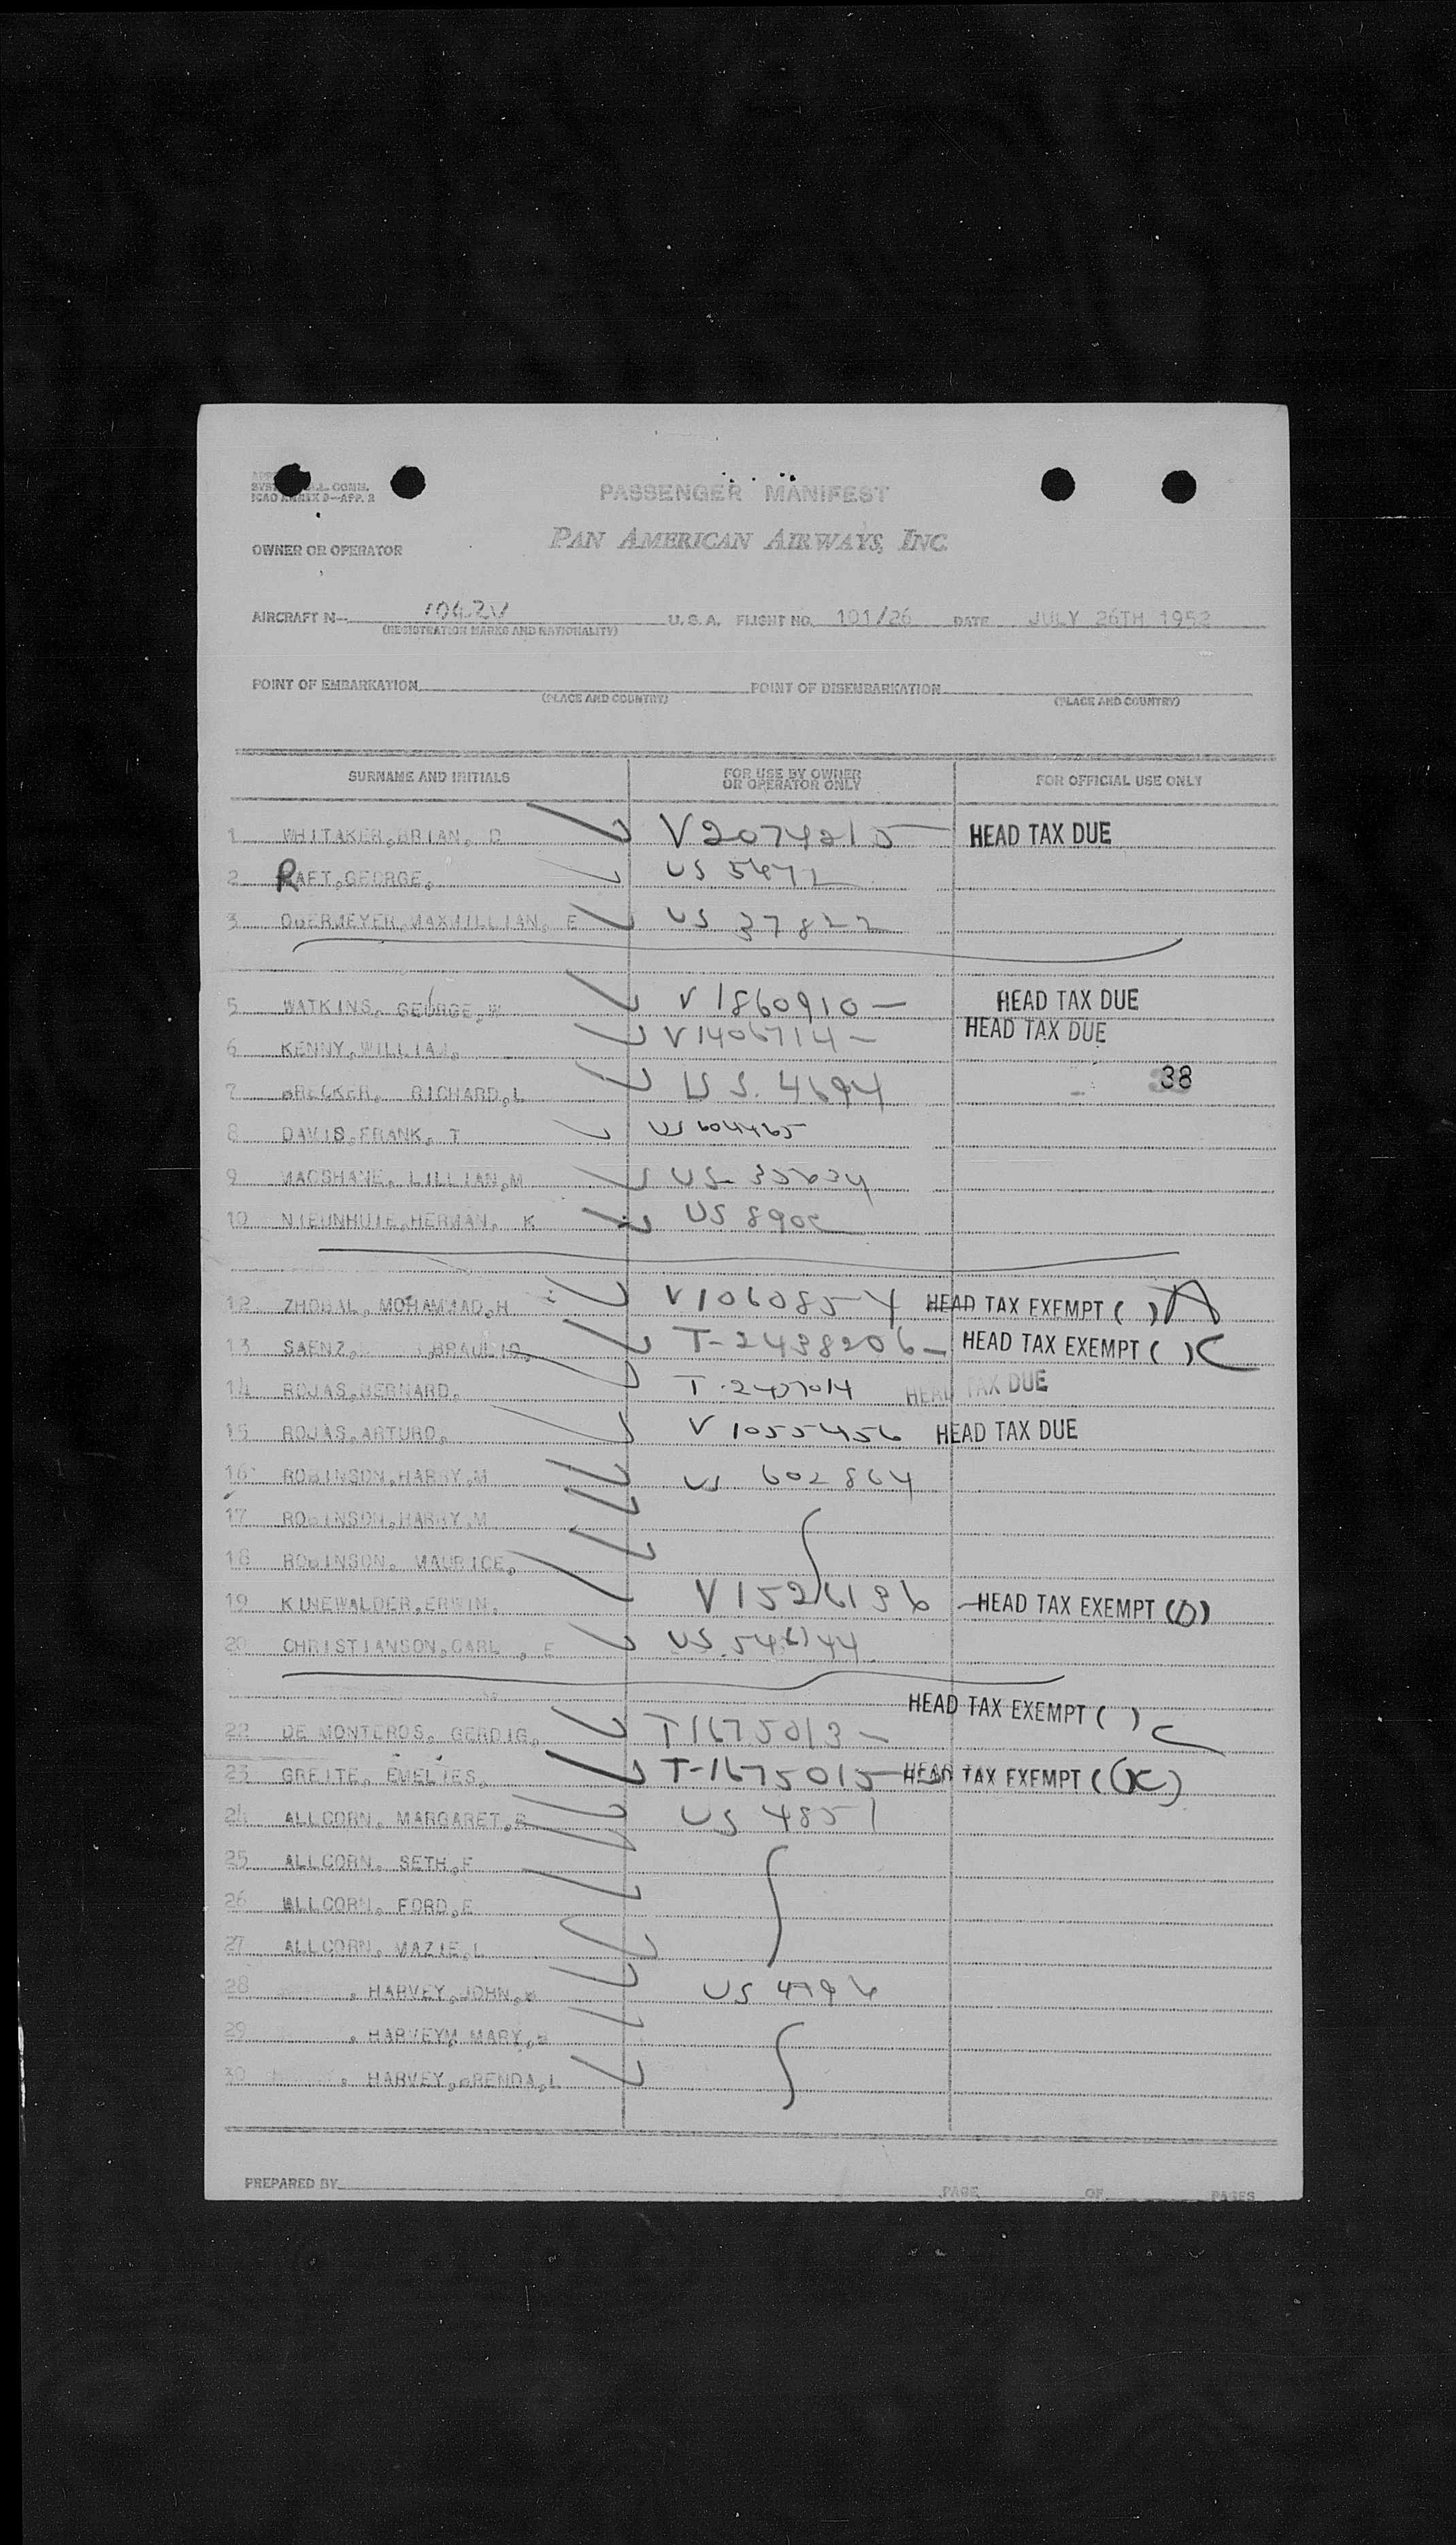 PASSENGER MANIFEST
ICAO ANNEX 9—APP. 2
PAN AMERICAN AIRWAYS, INC.
OWNER OR OPERATOR
AIRCRAFT N- 1042V U.S.A. FLIGHT NO. 101/26 DATE JULY 26TH 1952
(REGISTRATION MARKS AND NATIONALITY)
POINT OF EMBARKATION POINT OF DISEMBARKATION
(PLACE AND COUNTRY) (PLACE AND COUNTRY)
SURNAME AND INITIALS FOR USE BY OWNER OR OPERATOR ONLY FOR OFFICIAL USE ONLY
1 WHITAKER,BRIAN, D V2074215 HEAD TAX DUE
2 RAFT,GEORGE, US
3 OBERMEYER,MAXMILLIAN, E US 37822
5 WATKINS, GEORGE,W V1860910 — HEAD TAX DUE
6 KENNY,WILLIAM, V1406714 — HEAD TAX DUE
7 BRECKER, RICHARD,L U S. 4694 38
8 DAVIS,FRANK, T US 604465
9 MACSHANE, LILLIAN,M US
10 NIEUNHUIE,HERMAN, K US
12 ZHOBAL, MOHAMMAD,H V1060854 HEAD TAX EXEMPT ( ) A
13 SAENZ, ,BRAULIO, T-2438206 — HEAD TAX EXEMPT ( ) C
14 ROJAS,BERNARD, T-2437014 HEAD TAX DUE
15 ROJAS,ARTURO, V 1055456 HEAD TAX DUE
16 ROBINSON,HARRY,M US 602864
17 ROBINSON,HARRY,M
18 ROBINSON, MAURICE,
19 KINEWALDER,ERWIN, V1526136 — HEAD TAX EXEMPT (D)
20 CHRISTIANSON,CARL , E US 546144
HEAD TAX EXEMPT ( ) C
22 DE MONTEROS, GERDIG, T1675013 —
23 GREITE, EMELIES, T-1675015 — HEAD TAX EXEMPT (C)
24 ALLCORN, MARGARET,B US 4851
25 ALLCORN, SETH,F
26 ALLCORN, FORD,E
27 ALLCORN, MAZIE,L
28 , HARVEY,JOHN, US 4796
29 , HARVEYM MARY,
30 , HARVEY,BRENDA,L
PREPARED BY PAGE OF PAGES